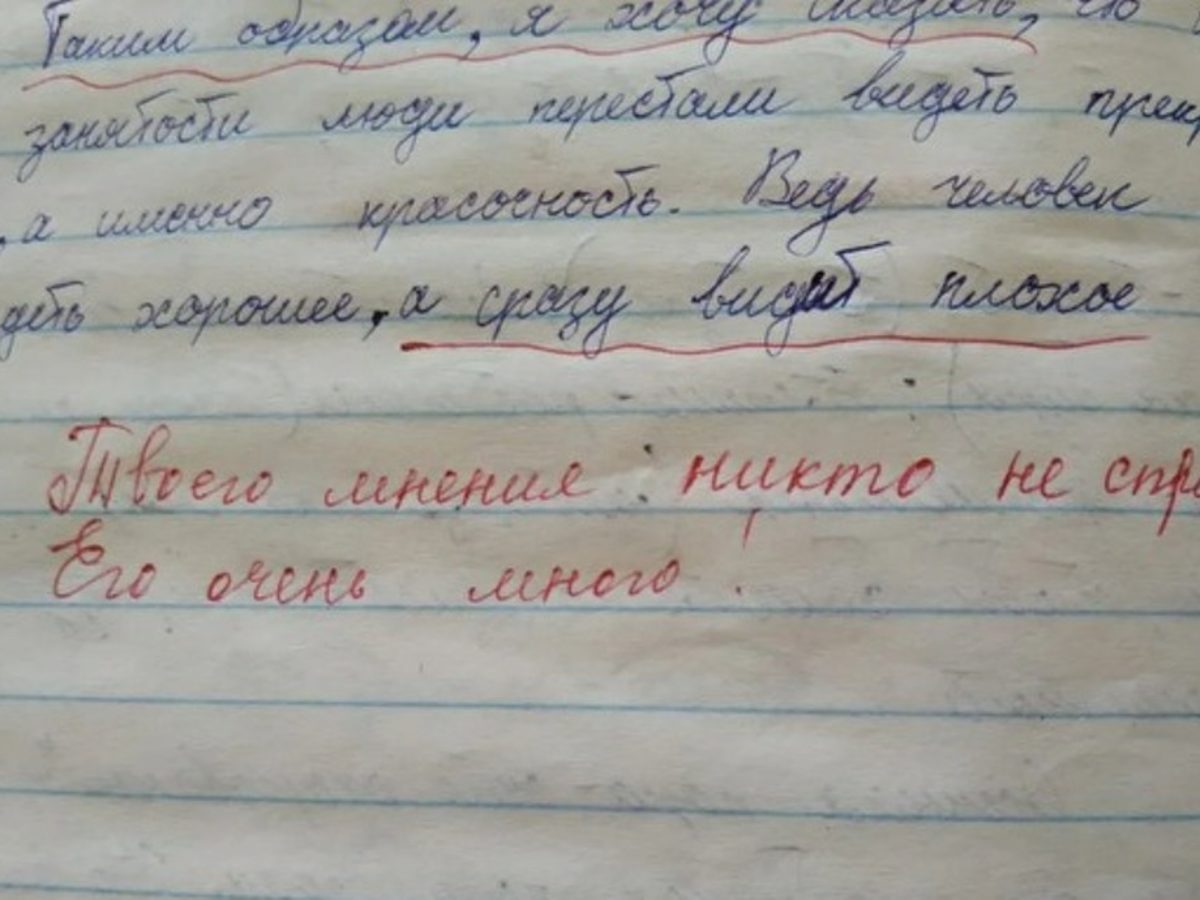 Таким образом, я хочу сказать, что
занятости люди перестали видеть
, а именно красочность. Ведь человек
деть хорошее, а сразу видит плохое
Твоего мнения никто не спра
Его очень много!